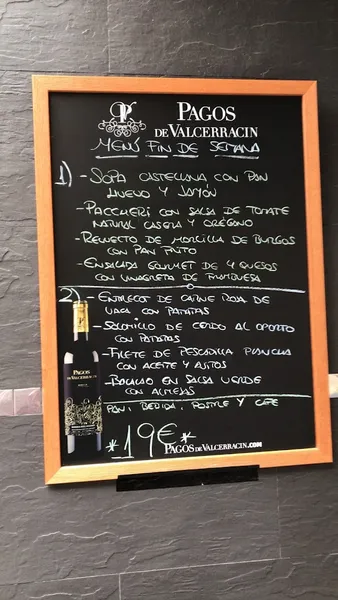 PAGOS
DE VALCERRACIN
MENÚ FIN DE SEMANA
1) - SOPA CASTELLANA CON PAN
HUEVO Y JAMÓN
- PACCHERI CON SALSA DE TOMATE
NATURAL CASERA Y ORÉGANO
- REVUELTO DE MORCILLA DE BURGOS
CON PAN FRITO
- ENSALADA GOURMET DE 4 QUESOS
CON VINAGRETA DE FRAMBUESA
2) - ENTRECOT DE CARNE ROJA DE
VACA CON PATATAS
- SOLOMILLO DE CERDO AL OPORTO
CON PATATAS
- FILETE DE PESCADILLA PLANCHA
CON ACEITE Y AJITOS
- BACALAO EN SALSA VERDE
CON ALMEJAS
PAN, BEBIDA, POSTRE Y CAFE
*19€*
PAGOS DE VALCERRACIN.COM
PAGOS
DE VALCERRACIN